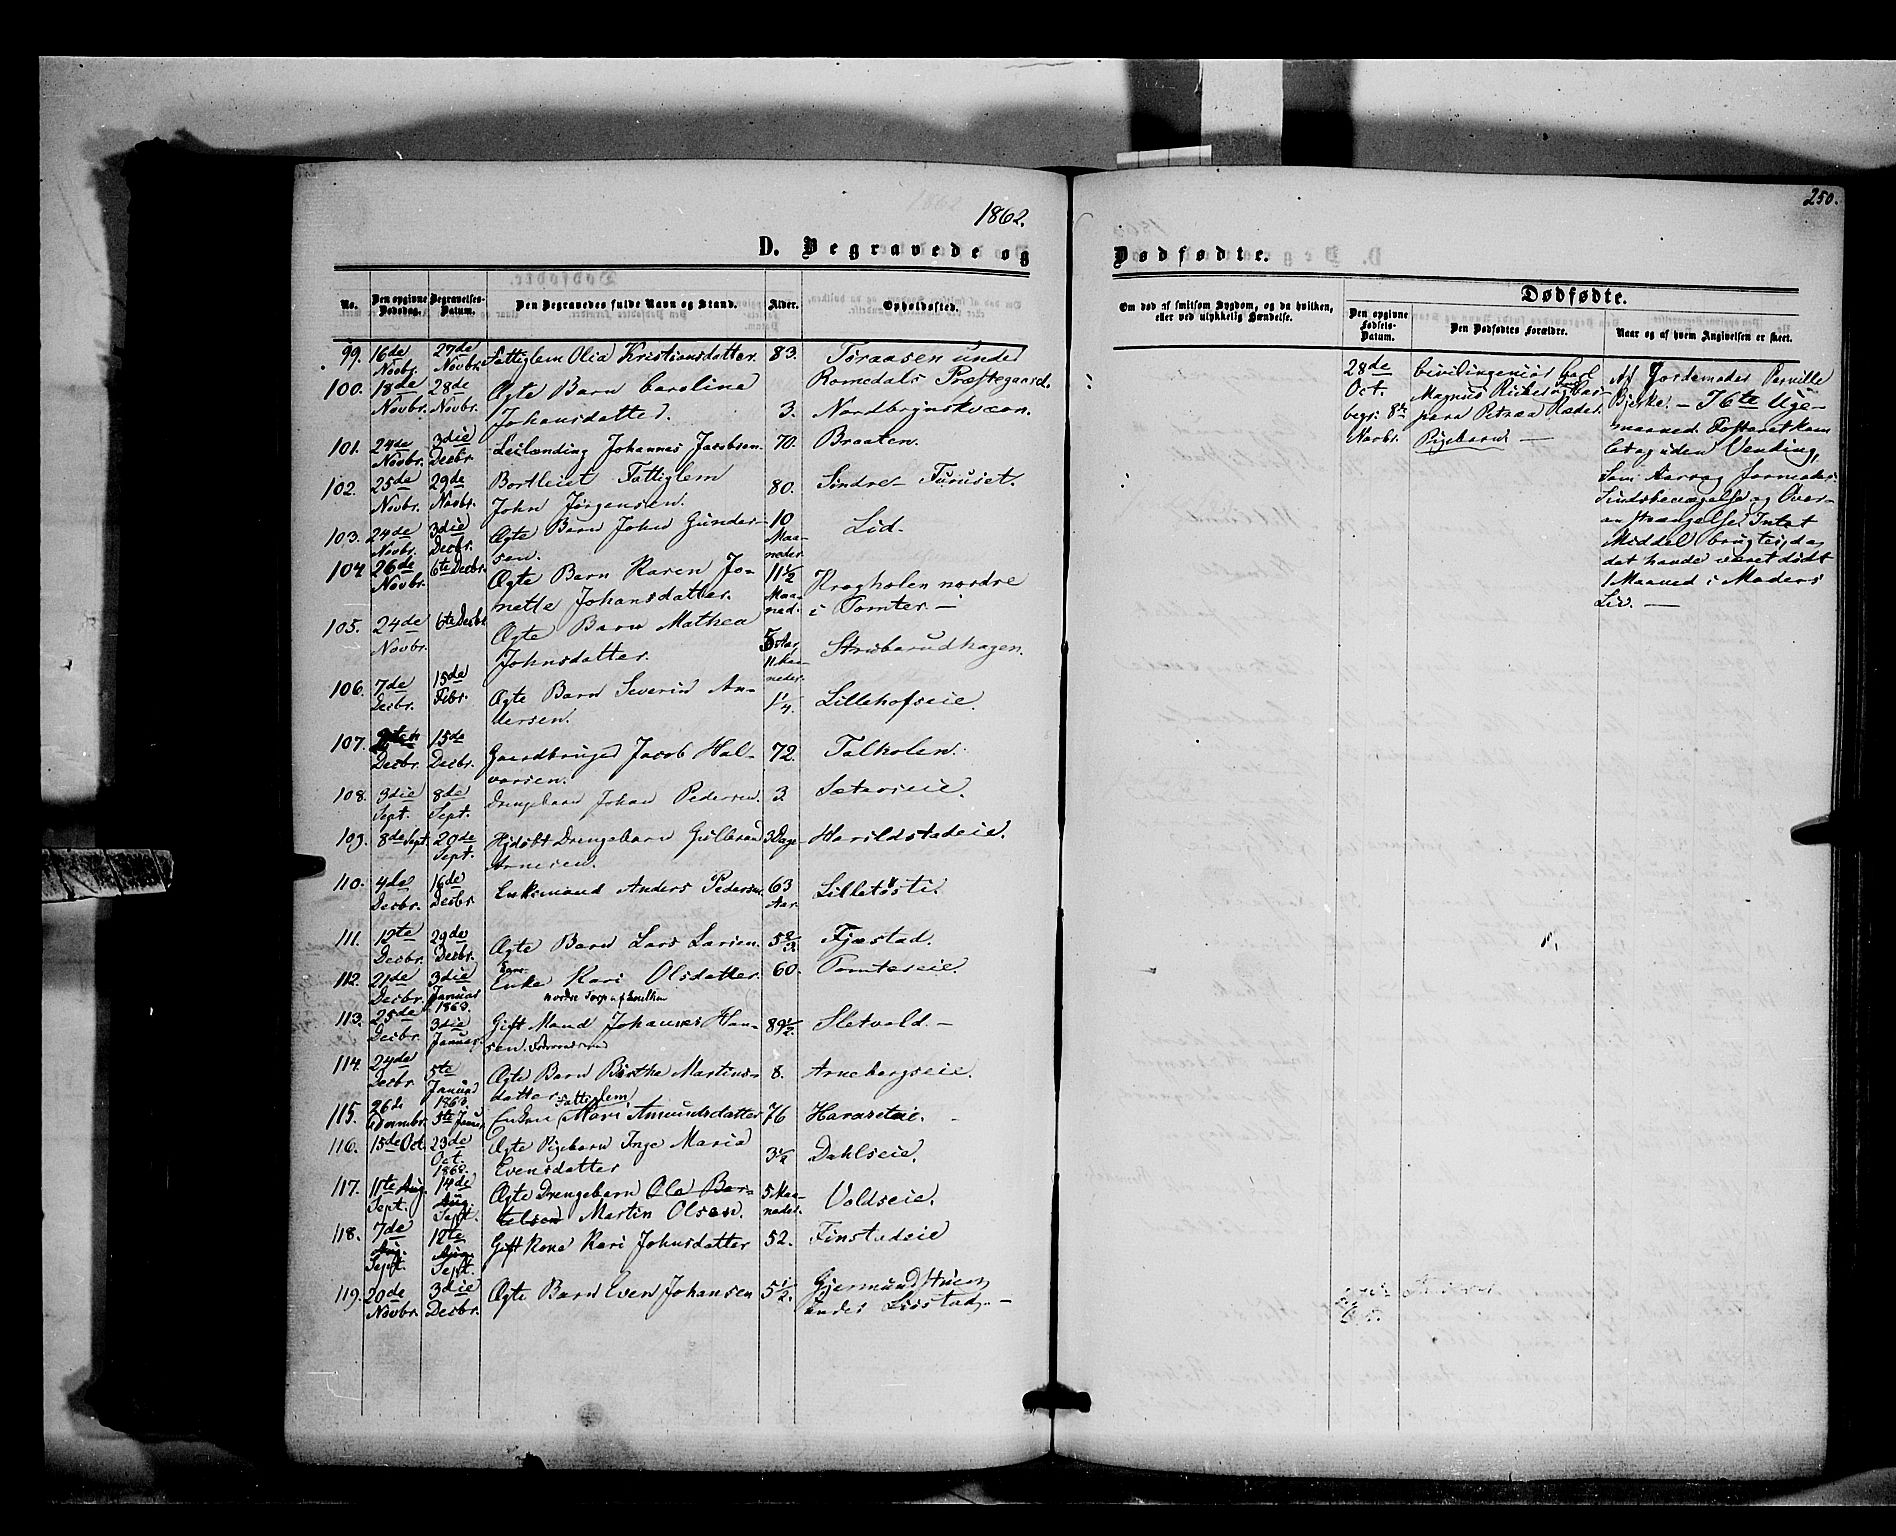 1862.
D. Begravede og
No.
Den opgivne Dødsdag.
Begravelses-Datum.
Den Begravedes fulde Navn og Stand.
Alder.
Opholdssted.
99. 16de Novbr. 27de Novbr. Fattiglem Olia Kristiansdatter. 83. Toraasen under Romedals Præstegaard.
100. 18de Novbr. 28de Novbr. Ægte Barn Carolina Johansdatter. 3. Nordbrynskværn.
101. 24de Novbr. 3die Decbr. Leilænding Johannes Jacobsen. 70. Braaten.
102. 25de Novbr. 29de Novbr. Bortleiet Fattiglem John Jørgensen. 80. Søndre Furuset.
103. 24de Novbr. 3die Decbr. Ægte Barn John Gundersen. 10 Maaneder. Lid.
104. 26de Novbr. 6te Decbr. Ægte Barn Karen Jonette Johansdatter. 11½ Maaned. Kragholen nordre i Tomter.
105. 24de Novbr. 6te Decbr. Ægte Barn Mathea Johnsdatter. Aar 11 Maaneder. Struberudhagen.
106. 7de Decbr. 15de Febr. Ægte Barn Severin Andersen. 1¼. Lillehofseie.
107. Decbr. 15de Decbr. Gaardbruger Jacob Halvorsen. 72. Talholen.
108. 3die Sept. 8de Sept. Drengebarn Johan Pedersen. 3. Sæterseie.
109. 8de Sept. 20de Sept. Hjdøbt Drengebarn Gulbrand Arnesen. 3 Dage Harildstadeie.
110. 4de Decbr. 16de Decbr. Enkemand Anders Pedersen. 63 Aar. Lilletøsti.
111. 12te Decbr. 29de Decbr. Ægte Barn Lars Larsen. 5⅔. Fjæstad.
112. 21de Decbr. 3die Januar 1863. Enke Kari Olsdatter. 60. Tomterseie.
nordre Torp af
113. 25de Decbr. 3die Januar. Gift Mand Johannes Hansen. 89½. Sletvold.
114. 24de Decbr. 5te Januar 1863. Ægte Barn Birthe Martinsdatter 8. Arnebergseie.
115. 26de 5te Januar Enken Fattiglem Mari Amundsdatter 76 Haraseteie.
116. 15de Oct. 23de Oct. Ægte Pigebarn Inge Maria Evensdatter 3½ Dahlseie.
117. 11te Aug. Sept. 14de Aug. Sept. Ægte Drengebarn Ole Bertelsen Martin Olsen. 5 Maaneder. Voldseie.
118. 7de Aug. Sept. 12te Aug. Sept. Gift Kone Kari Johnsdatter 52. Finstadeie
119. 20de Novbr. 3die Decbr. Ægte Barn Even Johansen 5½. Gjermundstuen under
250.
Dødfødte.
Om død af smitsom Sygdom, og da hvilken, eller ved ulykkelig Hændelse.
Dødfødte.
Den opgivne Fødsels-Datum.
Den Dødfødtes Forældre.
Naar og af hvem Angivelsen er skeet.
28de Oct. begr. 8de Novbr.
Civilingeniør Carl
Magnus
Petraa
Pigebarn —
Af Jordemoder Pernille
Bjerke. — 36te Uge-
maaned. Fosteret kom
let og uden Vending,
Som Aarsag formodes
Sindsbevægelse og Over-
anstrængelse. Intet
Middel brugtes, da
det havde været dødt
1 Maaned i Moders
Liv. —